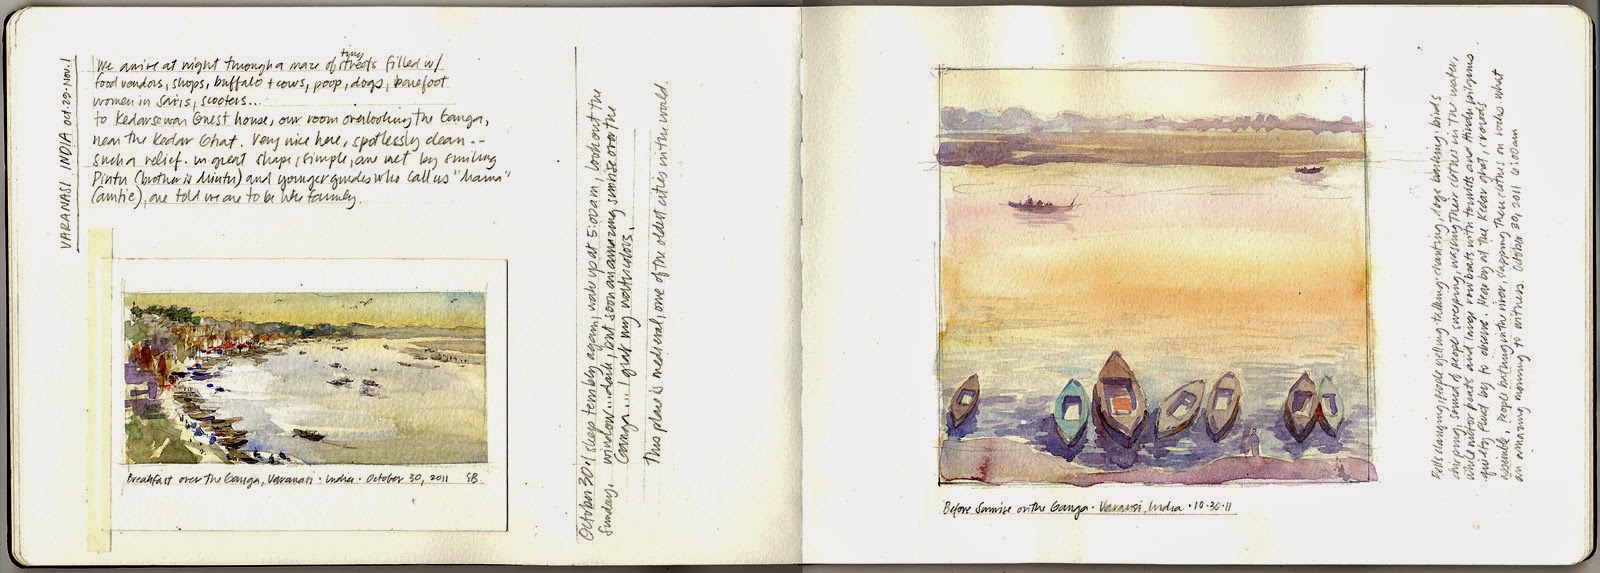 VARANASI INDIA Oct. 29-Nov. 1
We arrive at night through a maze of tiny streets filled w/
food vendors, shops, buffalo + cows, poop, dogs, barefoot
women in saris, scooters...
to Kedareswar Guest house, our room overlooking the Ganga,
near the Kedar Ghat. Very nice here, spotlessly clean --
such a relief. In great shape, simple, are met by smiling
Pintu (brother is Mintu) and younger guides who call us "Mama"
(auntie), are told we are to be like family.
Breakfast over the Ganga, Varanasi · India · October 30, 2011 SB
October 30 '11 sleep terribly again, wake up at 5:00am, look out the
Sunday. window...dark, but soon an amazing sunrise over the
Ganga... I grab my watercolors.
This place is medieval, one of the oldest cities in the world.
Before Sunrise on the Ganga · Varanasi, India · 10·30·11
Bells clanging, people yelling, talking, chanting, dogs barking, birds
chirping, sound of people sweeping, washing their clothes in the water,
while motor boats and large row boats with tourists and Hindu pilgrims
quietly float by to observe. Nearby at the Kedar ghat, crowds
assemble, people bathing in the river, slapping their clothes on rocks. what
an amazing morning to witness. October 30, 2011 6:00am